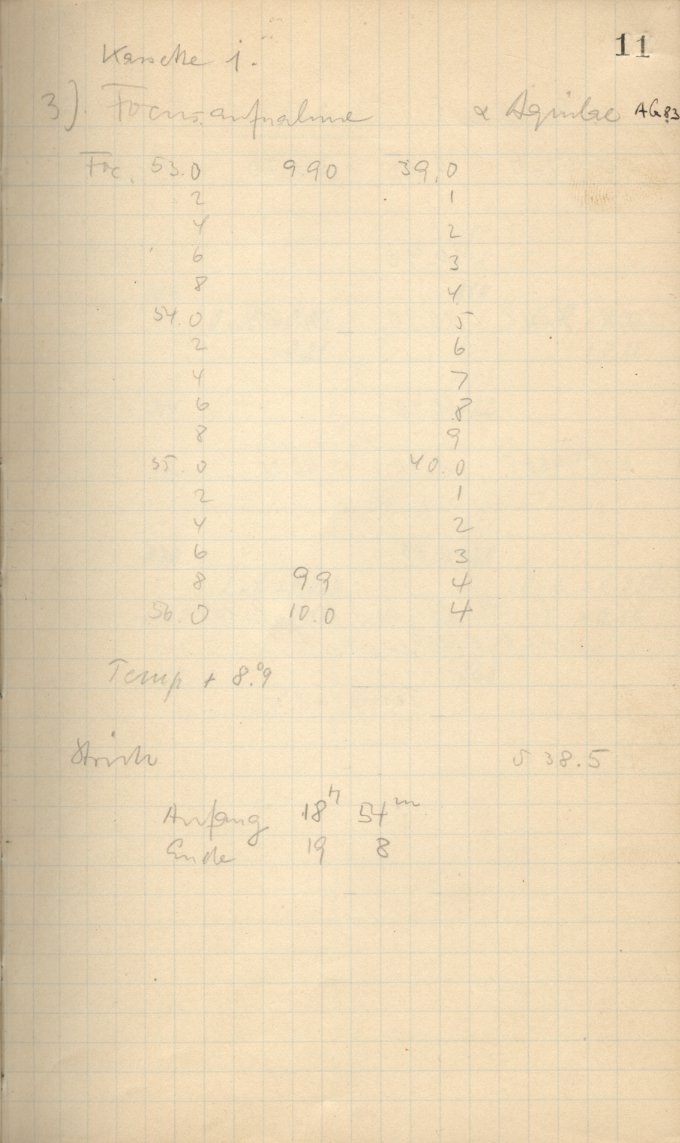 11
Kassette 1.
3). Focusaufnahme α Aquilae AG83
Foc. 53.0 990 39.0
2 1
4 2
6 3
8 4
54.0 5
2 6
4 7
6 8
8 9
55.0 40.0
2 1
4 2
6 3
8 99 4
56.0 10.0 4
Temp + 8.°9
38.5
Anfang 18h 54m
Ende 19 8